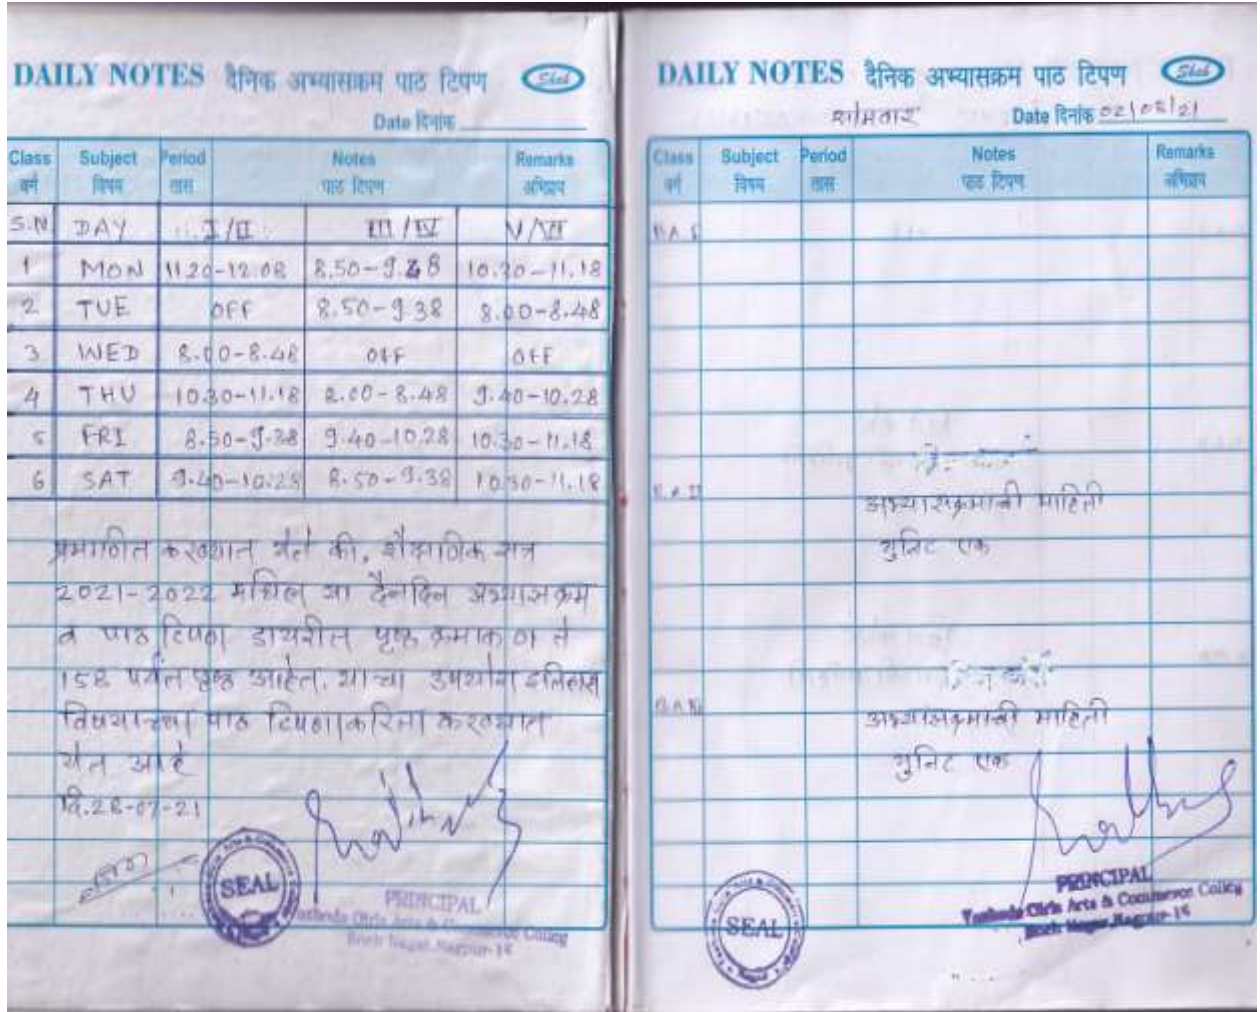 DAILY NOTES दैनिक अभ्यासक्रम पाठ टिपण Shah
Date दिनांक
Class Subject Period Notes Remarks
वर्ग विषय तास पाठ टिपण अभिप्राय
S.N DAY I/II III/IV V/VI
1 MON 11.20-12.08 8.50-9.38 10.30-11.18
2 TUE OFF 8.50-9.38 8.00-8.48
3 WED 8.00-8.48 OFF OFF
4 THU 10.30-11.18 8.00-8.48 9.40-10.28
5 FRI 8.50-9.38 9.40-10.28 10.30-11.18
6 SAT 9.40-10.28 8.50-9.38 10.30-11.18
प्रमाणित करण्यात येते की, शैक्षणिक सत्र
2021-2022 मधिल या दैनंदिन अभ्यासक्रम
व पाठ टिपण डायरीत पृष्ठ क्रमांक 01 ते
158 पर्यंत पृष्ठ आहेत. याचा उपयोग इतिहास
विषयाच्या पाठ टिपणाकरिता करण्यात
येत आहे
दि.28-07-21
SEAL
PRINCIPAL
Yashoda Girls Arts & Commerce Colleg
Nagar, Nagpur-15
DAILY NOTES दैनिक अभ्यासक्रम पाठ टिपण Shah
सोमवार Date दिनांक 02/08/21
Class Subject Period Notes Remarks
वर्ग विषय तास पाठ टिपण अभिप्राय
B.A. I
B.A. II
अभ्यासक्रमाची माहिती
युनिट एक
B.A. III
अभ्यासक्रमाची माहिती
युनिट एक
SEAL
PRINCIPAL
Yashoda Girls Arts & Commerce Colleg
Nagar, Nagpur-15